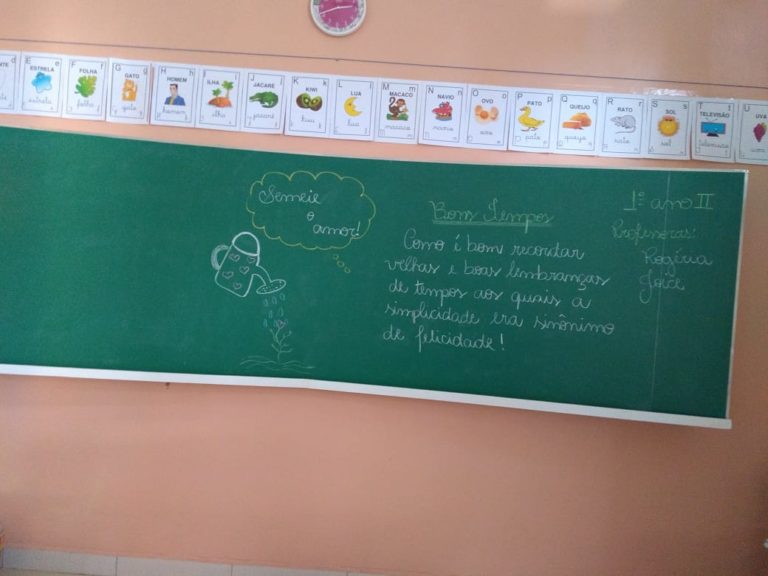 E e
ESTRELA
estrela
F f
FOLHA
folha
G g
GATO
gato
H h
HOMEM
homem
I i
ILHA
ilha
J j
JACARÉ
jacaré
K k
KIWI
kiwi
L l
LUA
lua
M m
MACACO
macaco
N n
NAVIO
navio
O o
OVO
ovo
P p
PATO
pato
Q q
QUEIJO
queijo
R r
RATO
rato
S s
SOL
sol
T t
TELEVISÃO
televisão
U
UVA
Semeie
o
amor!
Bons Tempos
Como é bom recordar
velhas e boas lembranças
de tempos aos quais a
simplicidade era sinônimo
de felicidade!
1º ano II
Professoras:
Rogéria
Joice